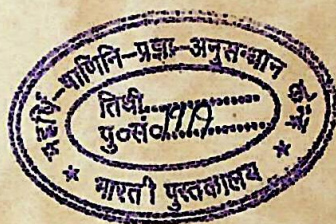 महर्षि-पाणिनि-प्रज्ञा-अनुसन्धान केन्द्र
तिथी............
पु०सं०1919............
★ भारती पुस्तकालय ★